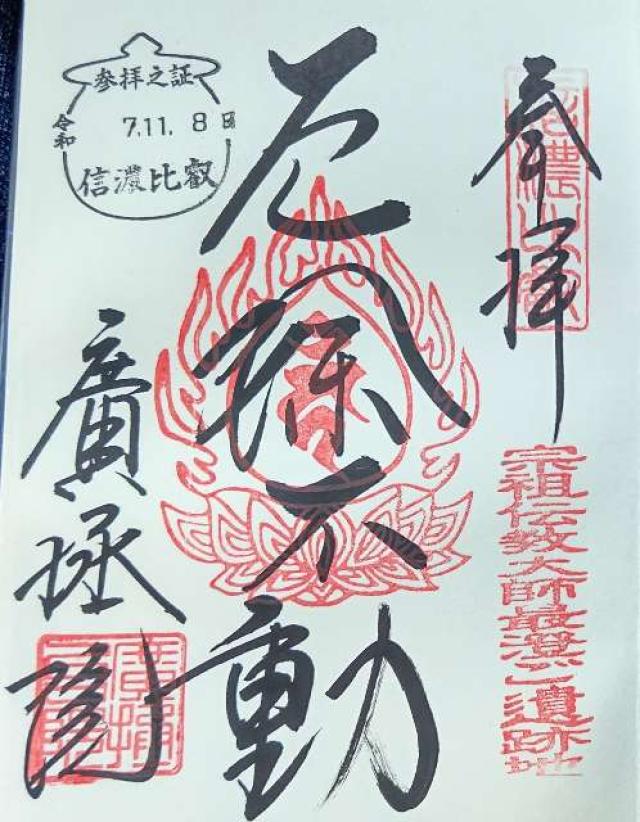 奉拝
信濃比叡
宗祖伝教大師最澄ご遺跡地
厄除不動
参拝之証
令和 7.11. 8日
信濃比叡
廣拯院